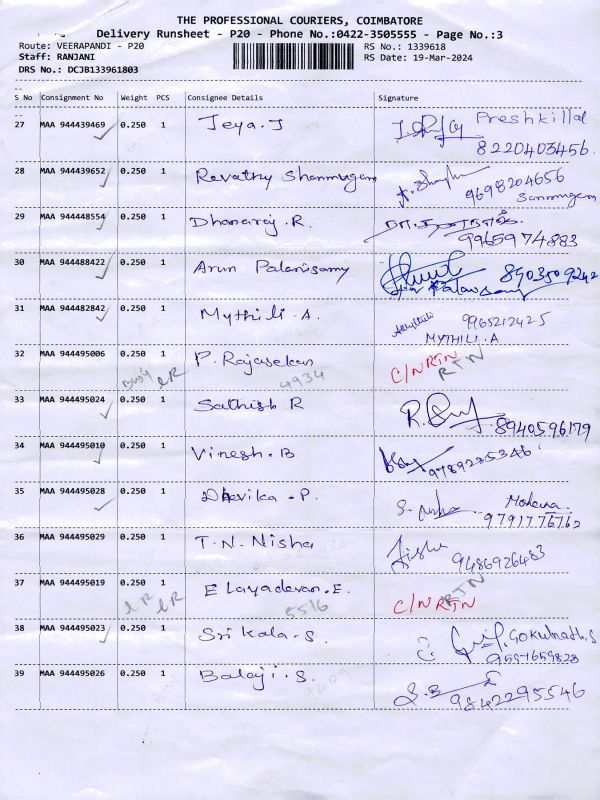 THE PROFESSIONAL COURIERS, COIMBATORE
Delivery Runsheet - P20 - Phone No.:0422-3505555 - Page No.:3
Route: VEERAPANDI - P20 RS No.: 1339618
Staff: RANJANI RS Date: 19-Mar-2024
DRS No.: DCJB133961803
S No Consignment No Weight PCS Consignee Details Signature
27 MAA 944439469 0.250 1 Jeya.J Preshkillal
8220403456
28 MAA 944439652 0.250 1 Revathy Shanmugam 9698204656
Sanmugam
29 MAA 944448554 0.250 1 Dhanaraj.R.
9965974883
30 MAA 944488422 0.250 1 Arun Palanisamy 8903509242
31 MAA 944482842 0.250 1 Mythili.A. 9965212425
MYTHILI.A
32 MAA 944495006 0.250 1 P.Rajasekan C/N RTN
Busy 4934 RTN
33 MAA 944495024 0.250 1 Sathish R
8940596179
34 MAA 944495010 0.250 1 Vinesh.B 9789235346
35 MAA 944495028 0.250 1 Dhevika.P. Mohana
9791776762
36 MAA 944495029 0.250 1 T.N.Nisha Nisha
9486926483
37 MAA 944495019 0.250 1 Elayadevan.E. RTN
5516 C/N RTN
38 MAA 944495023 0.250 1 Srikala.S. Gokulnath.S
9597659828
39 MAA 944495026 0.250 1 Balaji.S. S.B
9842295546